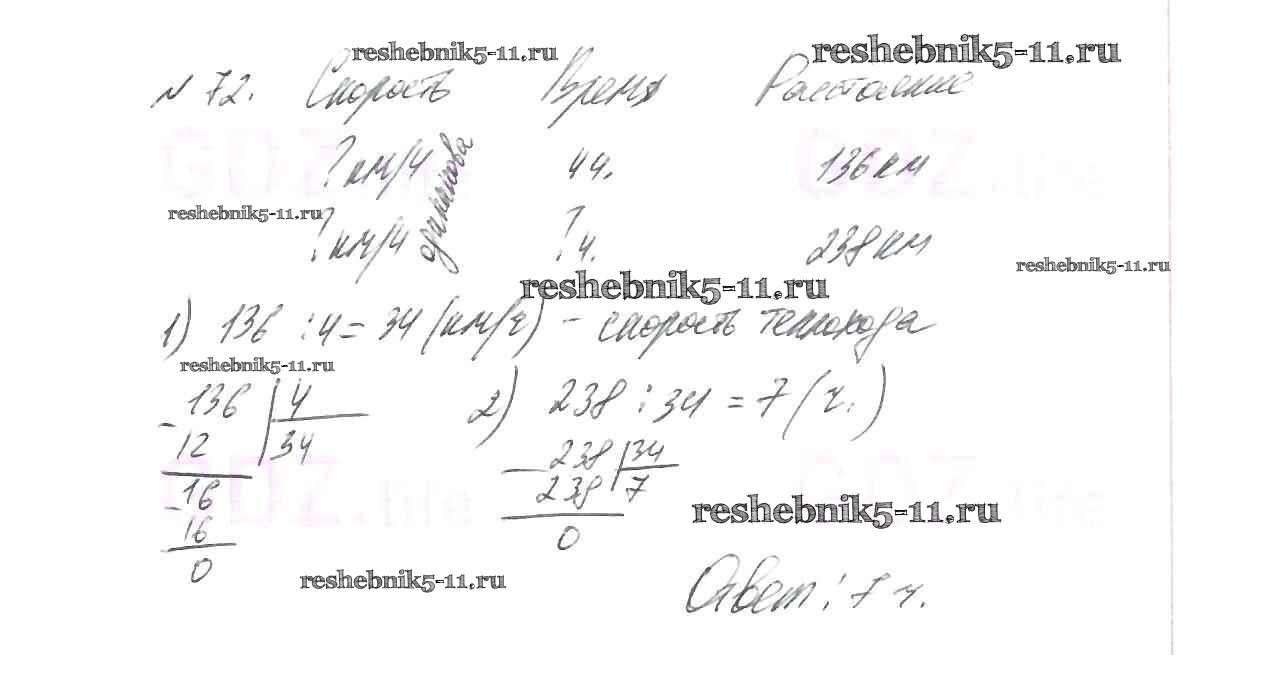 reshebnik5-11.ru
reshebnik5-11.ru
№ 72. Скорость Время Расстояние
? км/ч 4 ч. 136 км
одинакова
reshebnik5-11.ru
? км/ч ? ч. 238 км
reshebnik5-11.ru
reshebnik5-11.ru
1) 136 : 4 = 34 (км/ч) - скорость теплохода
reshebnik5-11.ru
136 4
12 34
16
16
0
2) 238 : 34 = 7 (ч.)
238 34
238 7
0
reshebnik5-11.ru
reshebnik5-11.ru
Ответ: 7 ч.
GDZ.life
GDZ.life
GDZ.life
GDZ.life